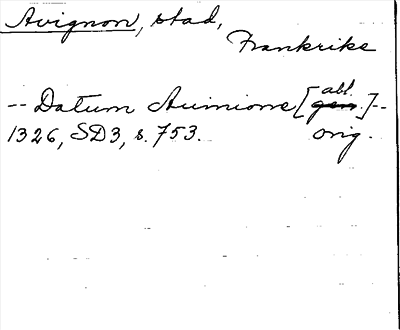 Avignon, stad,
Frankrike
abl.
-- Datum Auinione [gen.] --
1326, SD3, s. 753. orig.